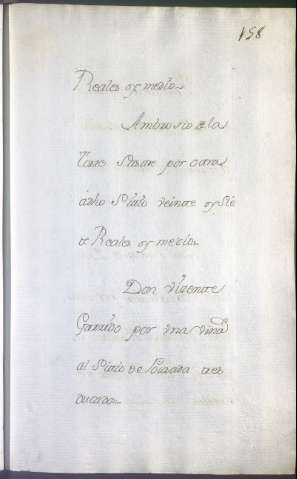 158
Reales y medio
Ambrosio de la
Torre por otra
dicho Sitio veinte y sie
te Reales y medio
Don Vizente
Garrido por una viña
al Sitio de tres
quartos